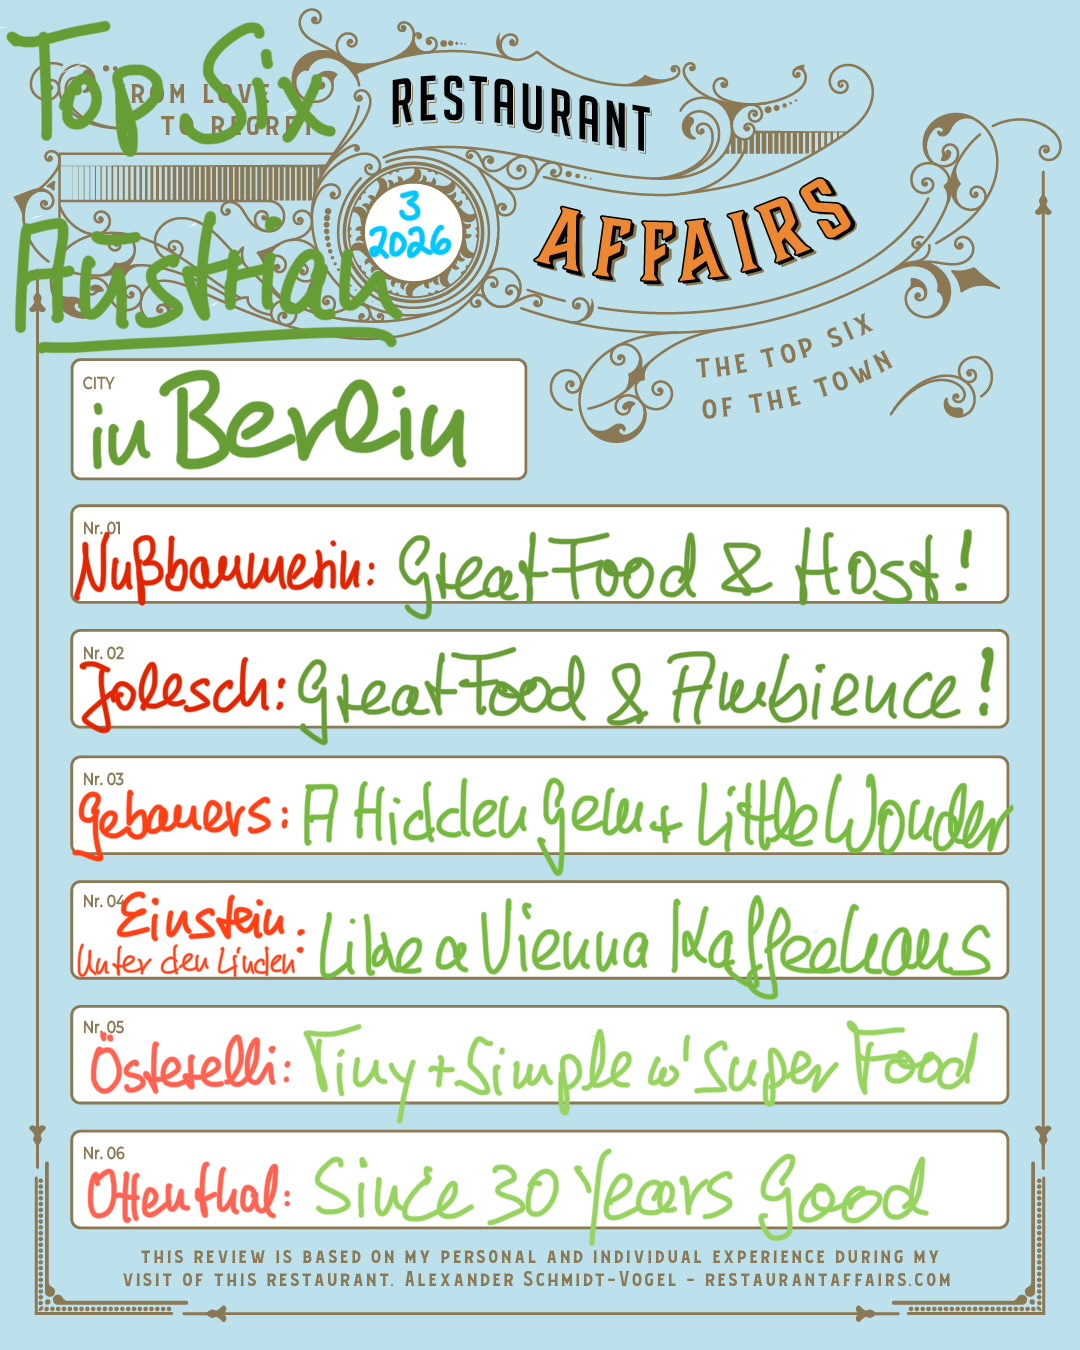 Top Six
FROM LOVE
TO REGRET
RESTAURANT
AFFAIRS
3
2026
Austrian
THE TOP SIX
OF THE TOWN
CITY
in Berlin
Nr. 01
Nußbaumerin: Great Food & Host!
Nr. 02
Jolesch: Great Food & Ambience!
Nr. 03
Gebauers: A Hidden Gem + Little Wonder
Nr. 04
Einstein
Unter den Linden: Like a Vienna Kaffeehaus
Nr. 05
Österelli: Tiny + Simple w' Super Food
Nr. 06
Ottenthal: Since 30 Years Good
THIS REVIEW IS BASED ON MY PERSONAL AND INDIVIDUAL EXPERIENCE DURING MY
VISIT OF THIS RESTAURANT. ALEXANDER SCHMIDT-VOGEL - RESTAURANTAFFAIRS.COM